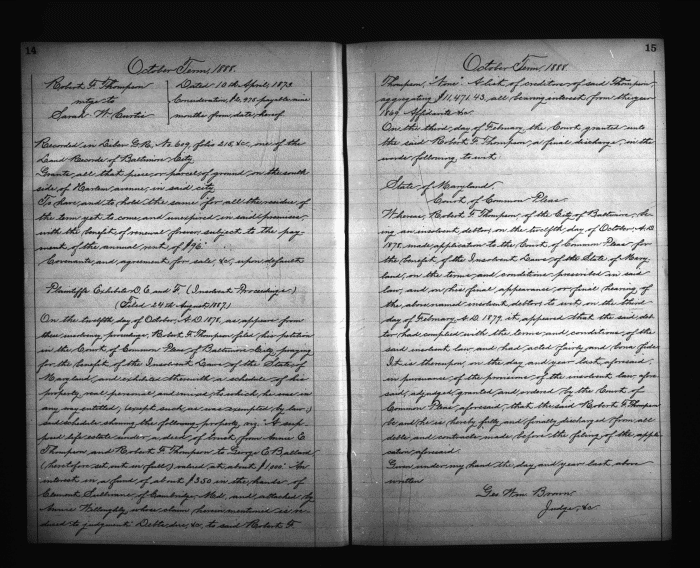 14
October Term, 1888.
Robert F. Thompson
mtge to
Sarah W. Curtis
Dated 10th April, 1873
Consideration, payable nine
months from date hereof
Recorded in Liber G.R. No. 609, folio 218, &c., one of the
Land Records of Baltimore City.
Grants all that piece or parcel of ground on the south
side of Harlem avenue, in said city
To have and to hold the same "for all the residue of
the term yet to come and unexpired in said premises,
with the benefit of renewal forever, subject to the pay-
ment of the annual rent of $96"
Covenants, and agreement for sale, &c., upon default
Plaintiffs Exhibits D, E, and F. (Insolvent Proceedings)
(Filed 24th August 1887)
On the twelfth day of October, A.D. 1878, as appears from
these insolvency proceedings, Robert F. Thompson filed his petition
in the Court of Common Pleas of Baltimore City, praying
for the benefit of the Insolvent Laws of the State of
Maryland, and exhibited therewith a schedule of his
property, real, personal and mixed, to which he was in
any way entitled, (except such as was exempted by law)
said schedule showing the following property, viz: "A sup-
posed life estate under a deed of trust from Annie E.
Thompson and Robert F. Thompson to George E. Ballard
(heretofore set out in full) valued at about $1,000." An
interest in a fund of about $350 in the hands of
Clement Sullivane of Cambridge Md, and attached by
Annie Willoughby whose claim hereinmentioned is re-
duced to judgment. Debts due, &c., to said Robert F.
15
October Term, 1888
Thompson, "None." A list of creditors of said Thompson,
aggregating $11,471.43, all bearing interest from the year
1869 Affidavits &c.
On the third day of February the Court granted unto
the said Robert F. Thompson, a final discharge, in the
words following, to wit:
State of Maryland
Court of Common Pleas.
Whereas, Robert F. Thompson, of the City of Baltimore, be-
ing an insolvent debtor, on the twelfth day of October, A.D.
1878, made application to the Court of Common Pleas for
the benefit of the Insolvent Laws of the State of Mary-
land, on the terms and conditions prescribed in said
law, and on his final appearance, or final hearing of
the above named insolvent debtor, to wit, on the third
day of February A.D. 1879, it appeared that the said deb-
tor had complied with the terms and conditions of the
said insolvent law, and had acted fairly and bona fide
It is thereupon, on the day and year last aforesaid,
in pursuance of the provisions of the insolvent law, afore-
said, adjudged, granted and ordered by the Court of
Common Pleas, aforesaid, that the said Robert F. Thompson
be and he is hereby fully and finally discharged from all
debts and contracts made before the filing of the appli-
cation aforesaid.
Given under my hand the day and year last above
written
Geo. Wm. Brown
Judge, &c.